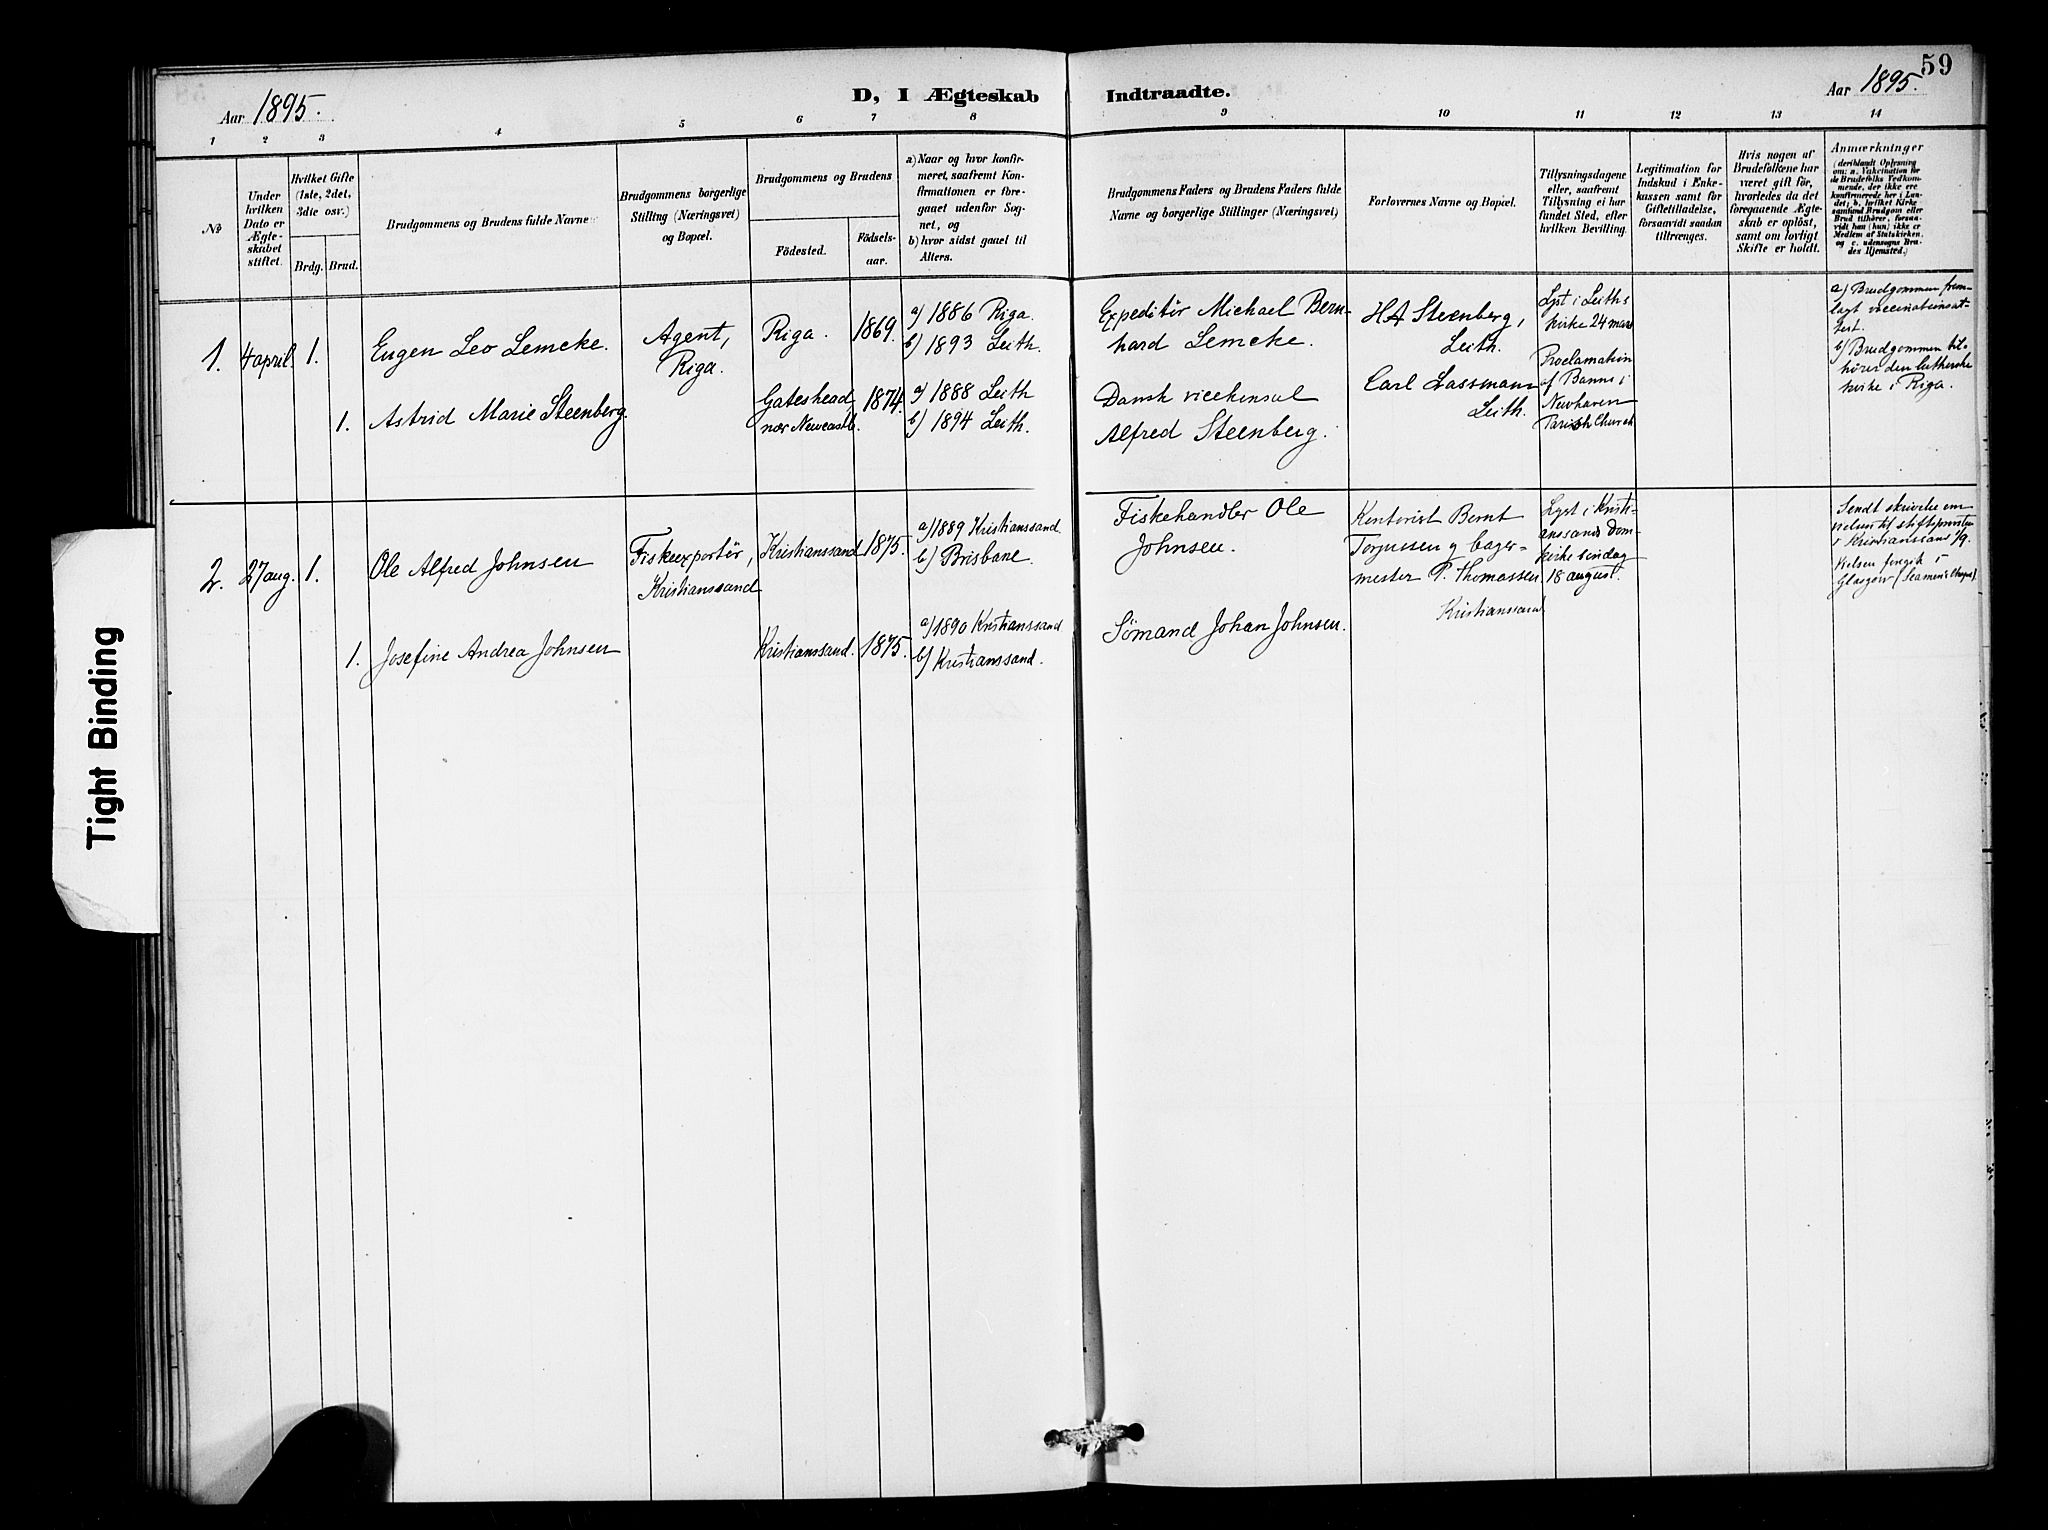 59
Aar 1895.
D, I Ægteskab Indtraadte.
Aar 1895.
1 2 3 4 5 6 7 8 9 10 11 12 13 14
No
Under
hvilken
Dato er
Ægte-
skabet
stiftet.
Hvilket Gifte
(1ste, 2det,
3die osv.)
Brdg. Brud.
Brudgommens og Brudens fulde Navne
Brudgommens borgerlige
Stilling (Næringsvei)
og Bopæl.
Brudgommens og Brudens
Födested.
Födsels-
aar.
a) Naar og hvor konfir-
meret, saafremt Kon-
firmationen er fore-
gaaet udenfor Sog-
net, og
b) hvor sidst gaaet til
Alters.
Brudgommens Faders og Brudens Faders fulde
Navne og borgerlige Stillinger (Næringsvei)
Forlovernes Navne og Bopæl.
Tillysningsdagene
eller, saafremt
Tillysning ei har
fundet Sted, efter
hvilken Bevilling.
Legitimation for
Indskud i Enke-
kassen samt for
Giftetilladelse,
forsaavidt saadan
tiltrænges.
Hvis nogen af
Brudefolkene har
været gift för,
hvorledes da det
foregaaende Ægte-
skab er oplöst,
samt om lovligt
Skifte er holdt.
Anmærkninger
(deriblandt Oplysning
om: a. Vakcination for
de Brudefolks Vedkom-
mende, der ikke ere
konfirmerede her i Lan-
det; b. hvilket Kirke
samfund Brudgom eller
Brud tilhörer, forsaa-
vidt han (hun) ikke er
Medlem af Statskirken,
og c. udensogns Bru-
des Hjemsted.)
1. 4 april. 1.
Eugen Leo Lemcke.
Agent,
Riga.
Riga. 1869.
a) 1886 Riga.
b) 1893 Leith.
Expeditör Michael Bern-
hard Lemcke.
HA Steenberg,
Leith.
Carl Lassmann
Leith.
Lyst i Leiths
kirke 24 mars
Proclamation
of Banns i
Newhaven
Parish Church
a) Brudgommen frem-
lagt vaccinationsat-
test.
b) Brudgommen til-
hörer den lutherske
kirke i Riga.
1. Astrid Marie Steenberg.
Gateshead
nær Newcastle. 1874.
a) 1888 Leith
b) 1894 Leith.
Dansk vicekonsul
Alfred Steenberg.
2. 27 aug. 1.
Ole Alfred Johnsen
Fiskeexportör,
Kristianssand
Kristianssand 1875.
a) 1889 Kristianssand
b) Brisbane.
Fiskehandler Ole
Johnsen.
Kontorist Bernt
Torjussen og bager-
mester P. Thomassen
Kristianssand
Lyst i Kristi-
anssands Dom-
kirke söndag
18 august.
Sendt skrivelse om
vielsen til stiftsprovsten
i Kristianssand
Vielsen foregik i
Glasgow (Seamen's Chapel).
1. Josefine Andrea Johnsen
Kristianssand. 1875.
a) 1890 Kristianssand
b) Kristianssand.
Sömand Johan Johnsen.
Tight Binding